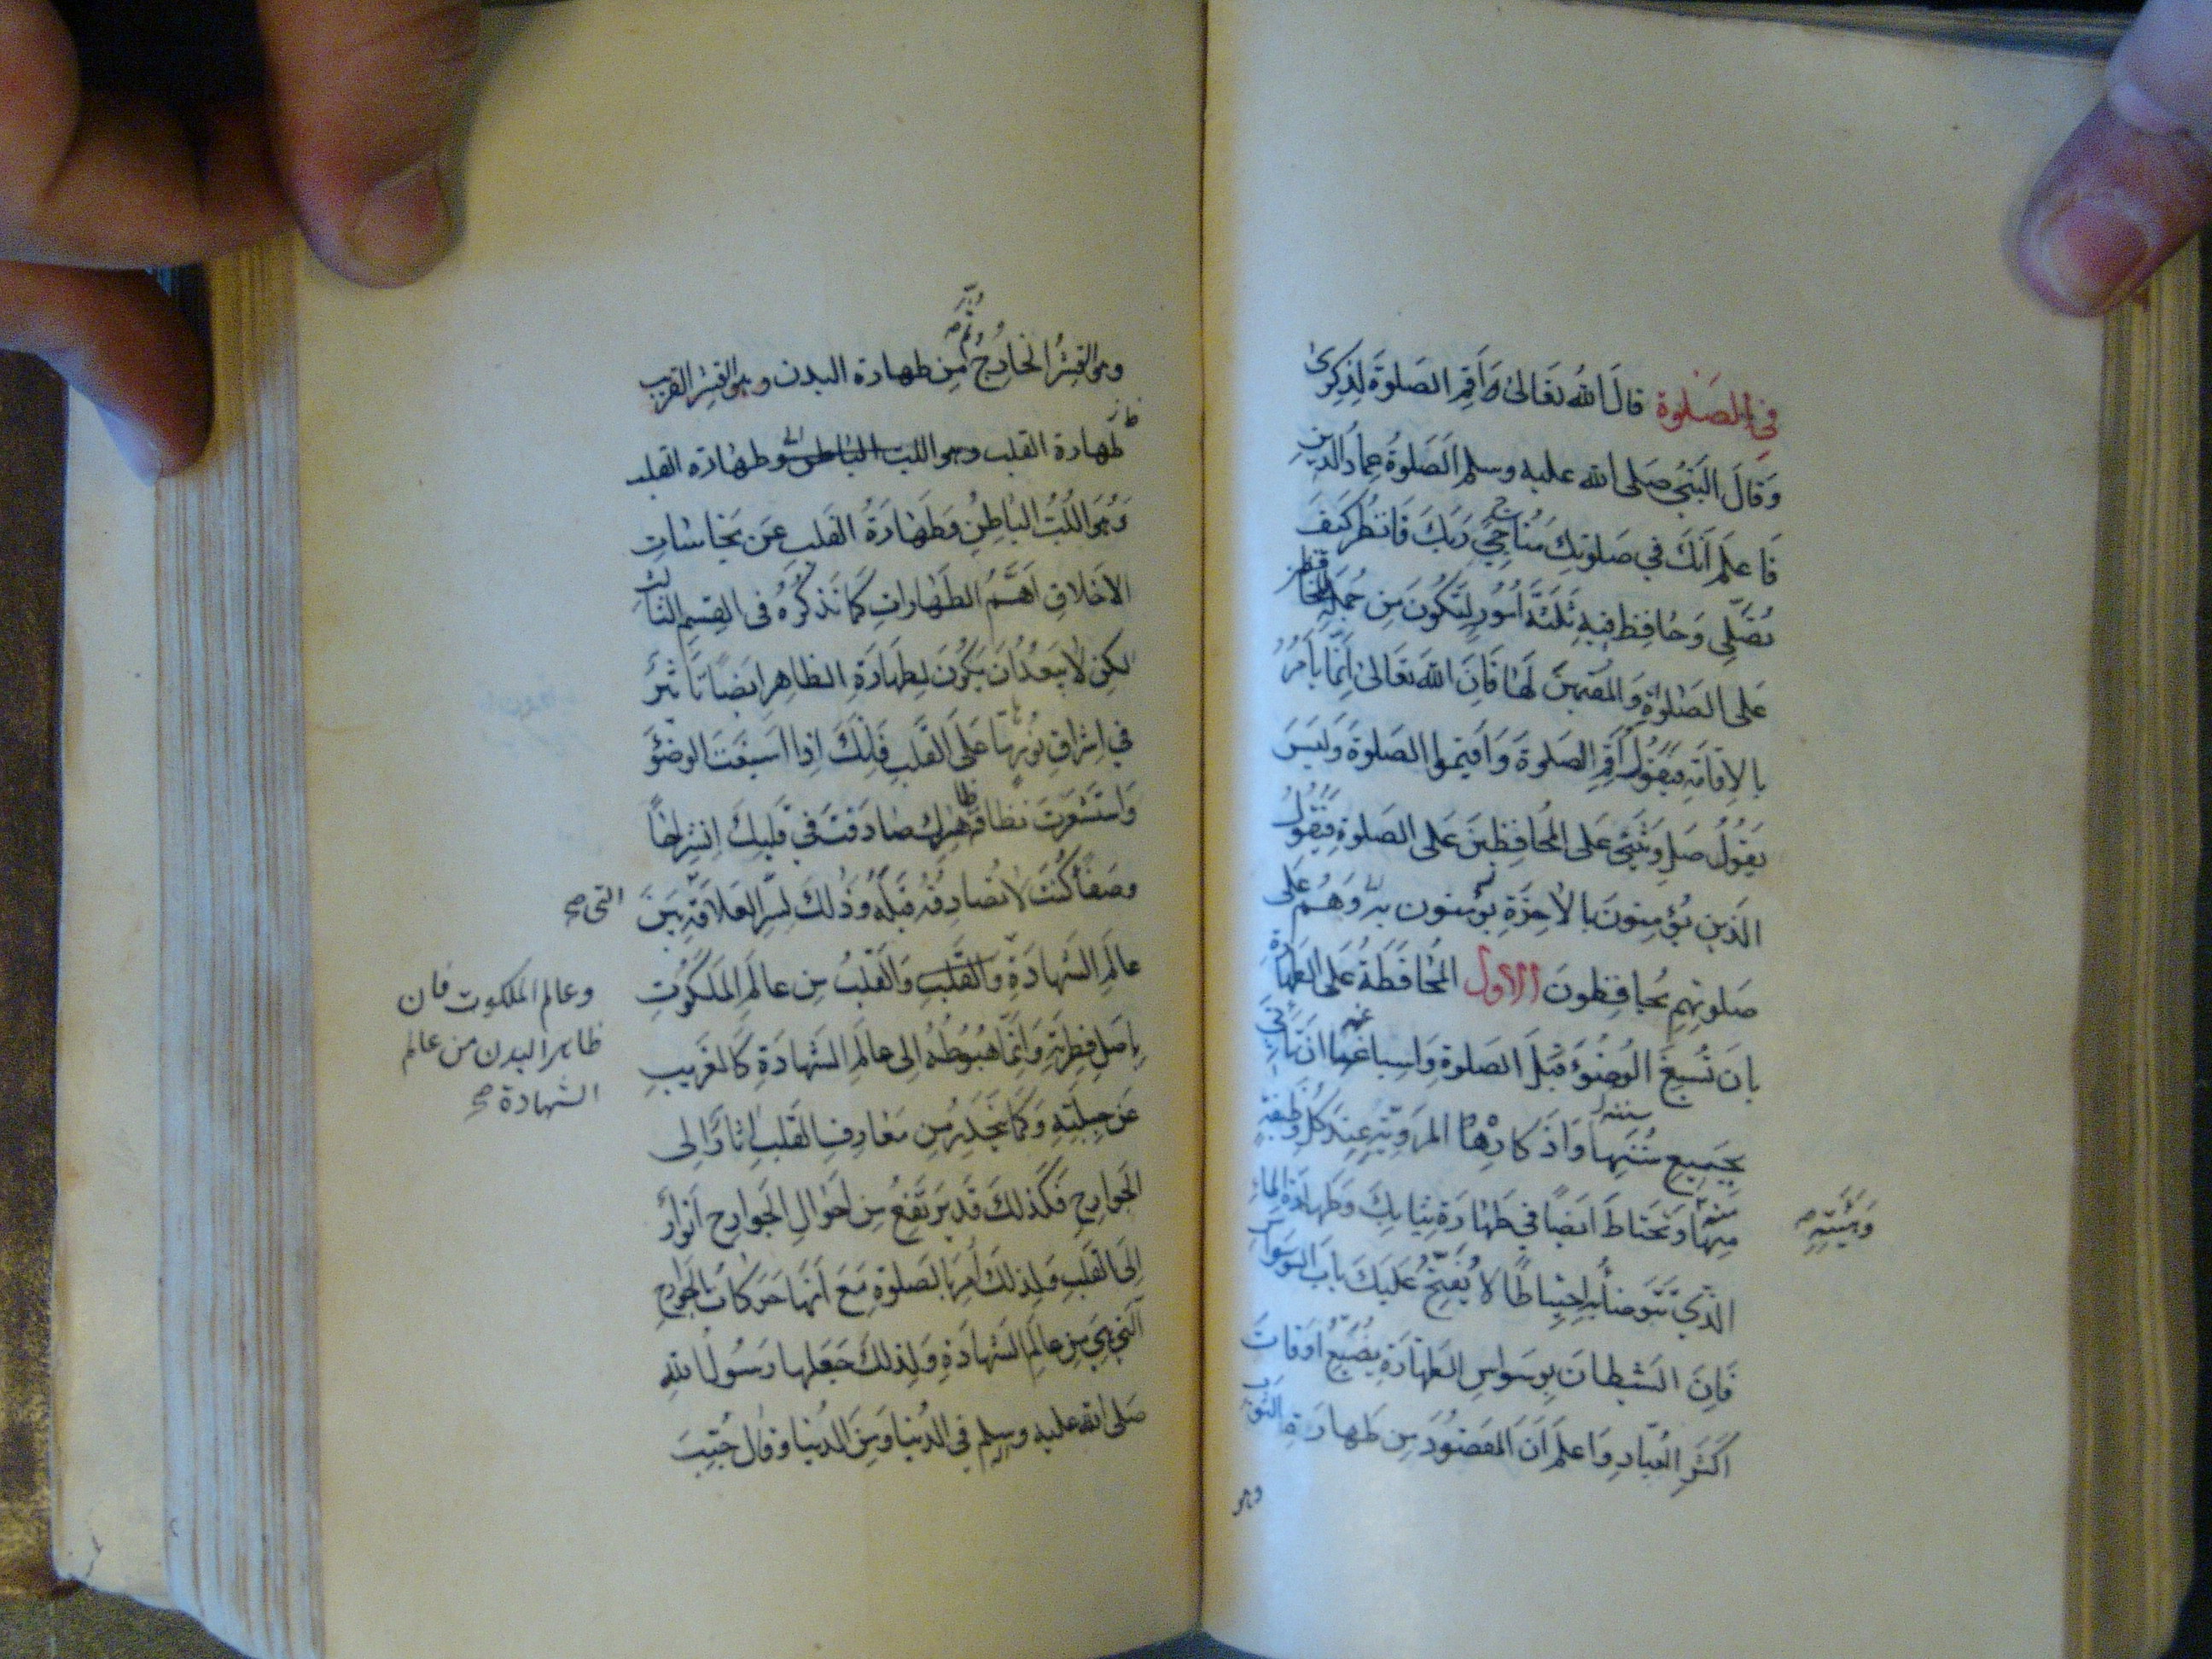 في الصلوة قال الله تعالى وَأَقِمِ الصلوةَ لِذِكرى
وَقالَ النَبيُّ صَلى الله عليه وسلم الصَلوةُ عِمادُ الدين
فَاعلم أَنَّكَ في صلوتِكَ مُناجي رَبِّكَ فَانظُر كَيفَ
تُصَلّى وَحافِظ فيهِ ثَلثَة أُمورٍ لِتَكُونَ مِن جُملَةِ المحافظين
عَلى الصَلوةِ وَالمقيمينَ لَها فَاِنَّ اللهَ تعَالى اِنَّما يَأمُرُ
بالاِقامَةِ فيَقُولُ أَقِمِ الصَلوةَ وَاَقيمُوا الصلوةَ وَلَيسَ
يَقُولُ صَلِّ وَيُثني عَلى المُحافِظينَ عَلى الصَلوةِ فيَقُولُ
الذين يُؤمِنونَ بالاخِرَةِ يُؤمنون به وَهُم عَلى
صَلوتِهِم يُحافِظونَ الاول المُحافَظَةُ عَلى الطهارة
بِاَن تُسبِغَ الوُضُوءَ قَبلَ الصَلوةِ وَاسباغُها ان تَأتي
بِجَميعِ سُنَنِها وَاَذكارِها المَروِيَّةِ عِندَ كُلِّ وَظيفَةٍ
مِنها وَتَحتاطَ اَيضًا في طَهارَةِ ثِيابِكَ وَطَهارَةِ الماءِ
وَنِيَّتِهِ صح
الَّذي تَتَوضأ بِه اِحتِياطًا لا يُفتِحُ عَلَيكَ بابَ الوَسواس
فَاِنَّ الشَيطانَ بِوَسواسِ الطَهارَةِ يُضَيِّعُ اَوقاتَ
اَكثَرِ العُبّادِ وَاعلَم اَنَّ المَقصُودَ مِن طَهارَةِ الثوب
وهو
وهو القِشرُ الخارِجُ ثُمَّ مِن طهارة البدن وهو القشر القريب
طهارة القلب وهو اللب الباطن وطهارة القلب
وَهُوَ اللُّبُّ الباطِنُ وَطَهارَةُ القَلب عَن نَجاساتِ
الاَخلاقِ اَهَمُّ الطَهاراتِ كَما نَذكُرُهُ في القِسمِ الثالث
لكِن لا يَبعُدُ اَن يَكُونَ لِطَهارَةِ الظاهِرِ ايضًا تَأثيرٌ
في اِشراقِ نُورِها عَلى القَلبِ فَاِنَّكَ اِذا اَسبَغتَ الوضُوءَ
وَاستَشعَرتَ نَظافَةَ ظاهِرِكَ صادَفتَ في قَلبِكَ اِنشِراحًا
وصَفاءً كُنتَ لا تُصادِفُهُ قَبلَهُ وَذلِكَ لِسِرِّ العَلاقَةِ بَينَ
التي صح
عالَمِ الشَهادَةِ وَالقَلبِ وَالقَلبُ مِن عالَمِ المَلَكُوتِ
وعالم الملكوت فان
ظاهر البدن من عالم
الشهادة صح
بِاَصلِ فِطرَتِهِ وَاِنَّما هُبُوطُهُ اِلى عالَمِ الشَهادَةِ كَالغَريبِ
عَن جِبِلَّتِهِ وَكَما يَنحَدِرُ مِن مَعارِفِ القَلبِ اثارٌ اِلى
الجَوارِحِ فَكَذلِكَ قَد يَرتَفِعُ مِن اَحوالِ الجَوارِحِ اَنوارٌ
اِلَى القَلبِ وَلِذلِكَ اُمِرَ بِالصَلوةِ مَعَ اَنَّها حَرَكاتُ الجَوارِحِ
الَّتي هِيَ مِن عالَمِ الشَهادَةِ وَلِذلِكَ جَعَلَها رَسُولُ اللهِ
صَلى الله عليه وسلم في الدُنيا وَمِنَ الدُنيا وقال حُبِّبَ